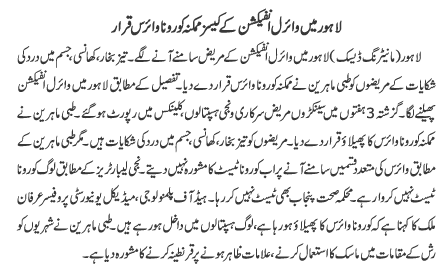 لاہور میں وائرل انفیکشن کے کیسز ممکنہ کورونا وائرس قرار
لاہور (مانیٹرنگ ڈیسک) لاہور میں وائرل انفیکشن کے مریض سامنے آنے لگے۔ تیز بخار، کھانسی، جسم میں درد کی
شکایات کے مریضوں کو طبی ماہرین نے ممکنہ کورونا وائرس قرار دے دیا۔ تفصیل کے مطابق لاہور میں وائرل انفیکشن
پھیلنے لگا۔ گزشتہ 3 ہفتوں میں سینکڑوں مریض سرکاری و نجی ہسپتالوں، کلینکس میں رپورٹ ہو گئے۔ طبی ماہرین نے
ممکنہ کورونا وائرس کا پھیلاؤ قرار دے دیا۔ مریضوں کو تیز بخار، کھانسی، جسم میں درد کی شکایات ہیں۔ مگر طبی ماہرین کے
مطابق وائرس کی متعدد قسمیں سامنے آنے پر اب کورونا ٹیسٹ کا مشورہ نہیں دیتے۔ نجی لیبارٹریز کے مطابق لوگ کورونا
ٹیسٹ نہیں کروا رہے۔ محکمہ صحت پنجاب بھی ٹیسٹ نہیں کر رہا۔ ہیڈ آف پلمنولوجی، میڈیکل یونیورسٹی پروفیسر عرفان
ملک کا کہنا ہے کہ کورونا وائرس کا پھیلاؤ ہو رہا ہے، لوگ ہسپتالوں میں داخل ہو رہے ہیں۔ طبی ماہرین نے شہریوں کو
رش کے مقامات میں ماسک کا استعمال کرنے، علامات ظاہر ہونے پر قرنطینہ کرنے کا مشورہ دیا ہے۔